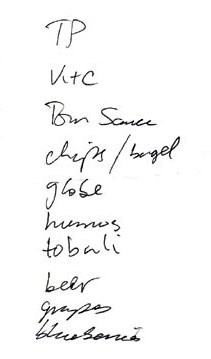 TP
Vit C
Tom Sauce
chips/bagel
globe
humus
tobouli
beer
grapes
blueberries